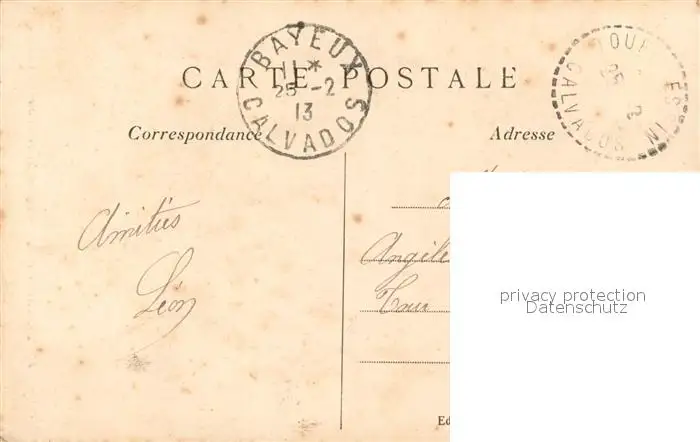 CARTE POSTALE
BAYEUX
11 *
25 -2
13
CALVADOS
CALVADOS
Correspondance
Adresse
Amitiés
Léon
Angèle
privacy protection
Datenschutz
Ed